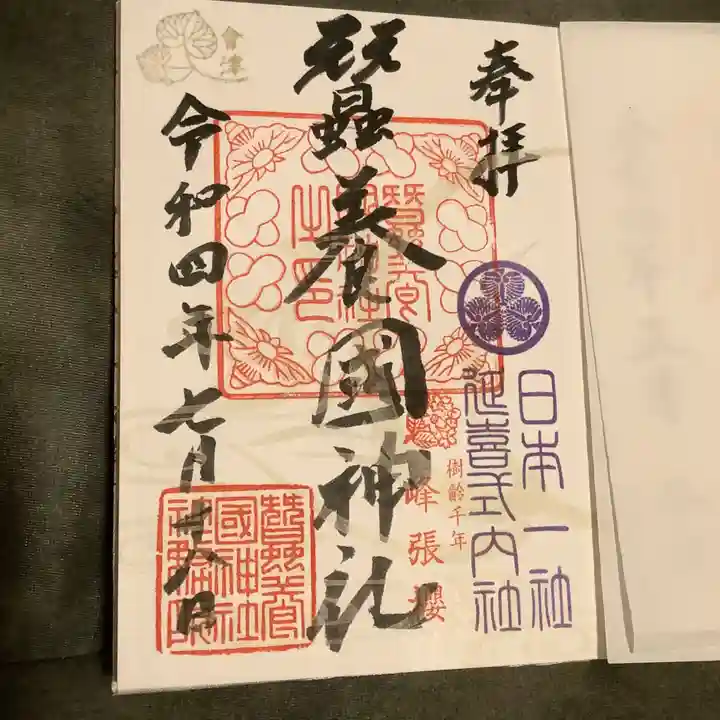 奉拝
日本一社
延喜式内社
樹齢千年
峰張櫻
蠶養國神社
蠶養國神社之印
會津
令和四年七月廿八日
蠶養國神社